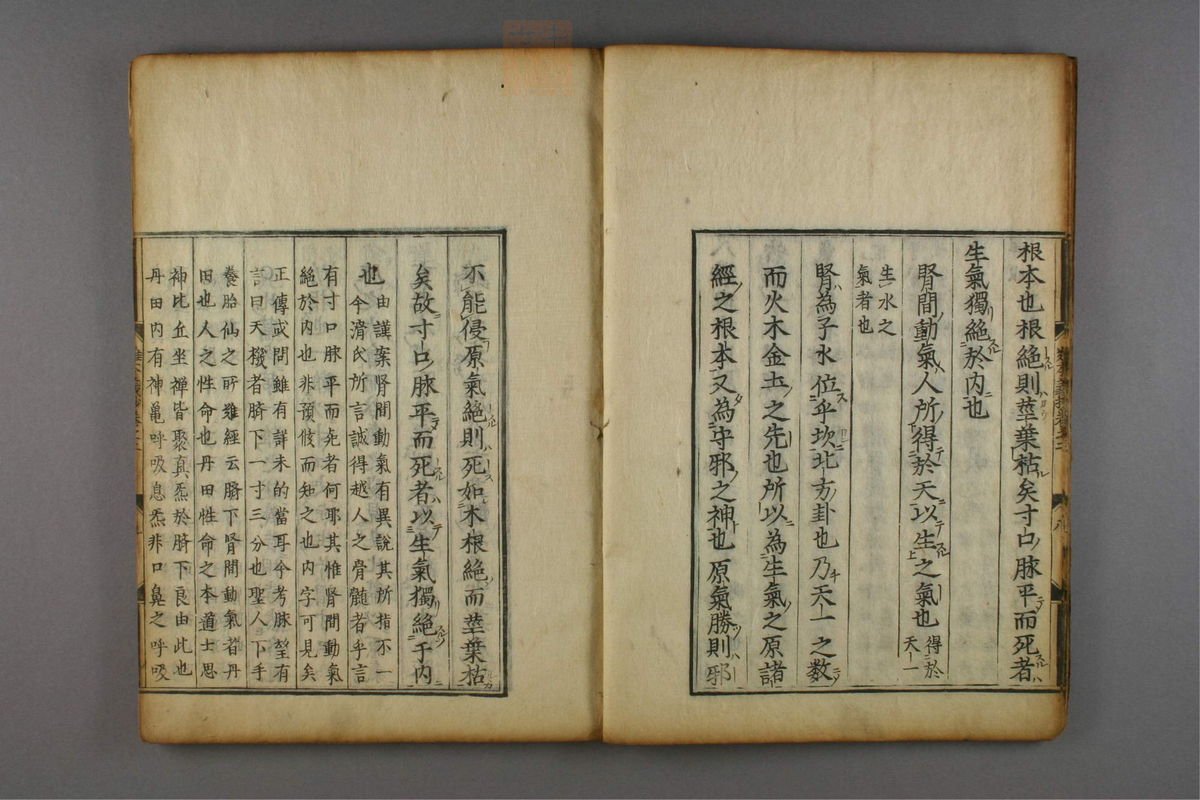 根本也根絶則莖葉枯矣寸口脉平而死者
生氣獨絶於内也
腎間動氣人所得於天以生之氣也得於天一
生水之氣者也
腎為子水位乎坎北方卦也乃天一之数
而火木金土之先也所以為生氣之原諸
經之根本又為守邪之神也原氣勝則邪
不能侵原氣絶則死如木根絶而莖葉枯
矣故寸口脉平而死者以生氣獨絶于内
也由謹案腎間動氣有異說其所指不一
今滑氏所言誠得越人之骨髓者乎言
有寸口脉平而死者何耶其惟腎間動氣
絶於内也非預候而知之也内字可見矣
正傳或問雖有詳未的當耳今考脉望有
言曰天機者臍下一寸三分也聖人下手
養胎仙之所難經云臍下腎間動氣者丹
田也人之性命也丹田性命之本道士思
神比丘坐禪皆聚真炁於臍下良由此也
丹田内有神龜呼吸息炁非口鼻之呼吸